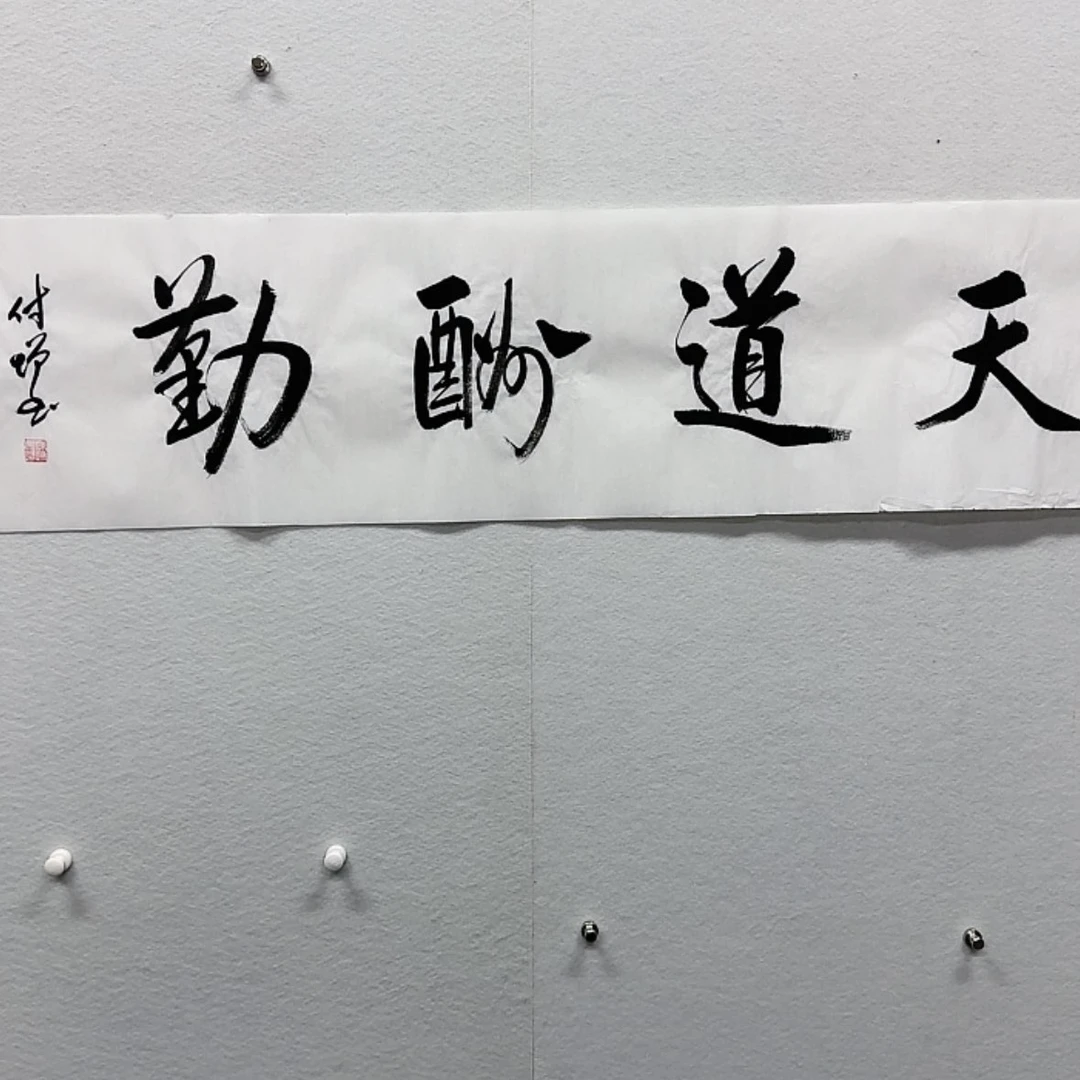 天道酬勤
付增书